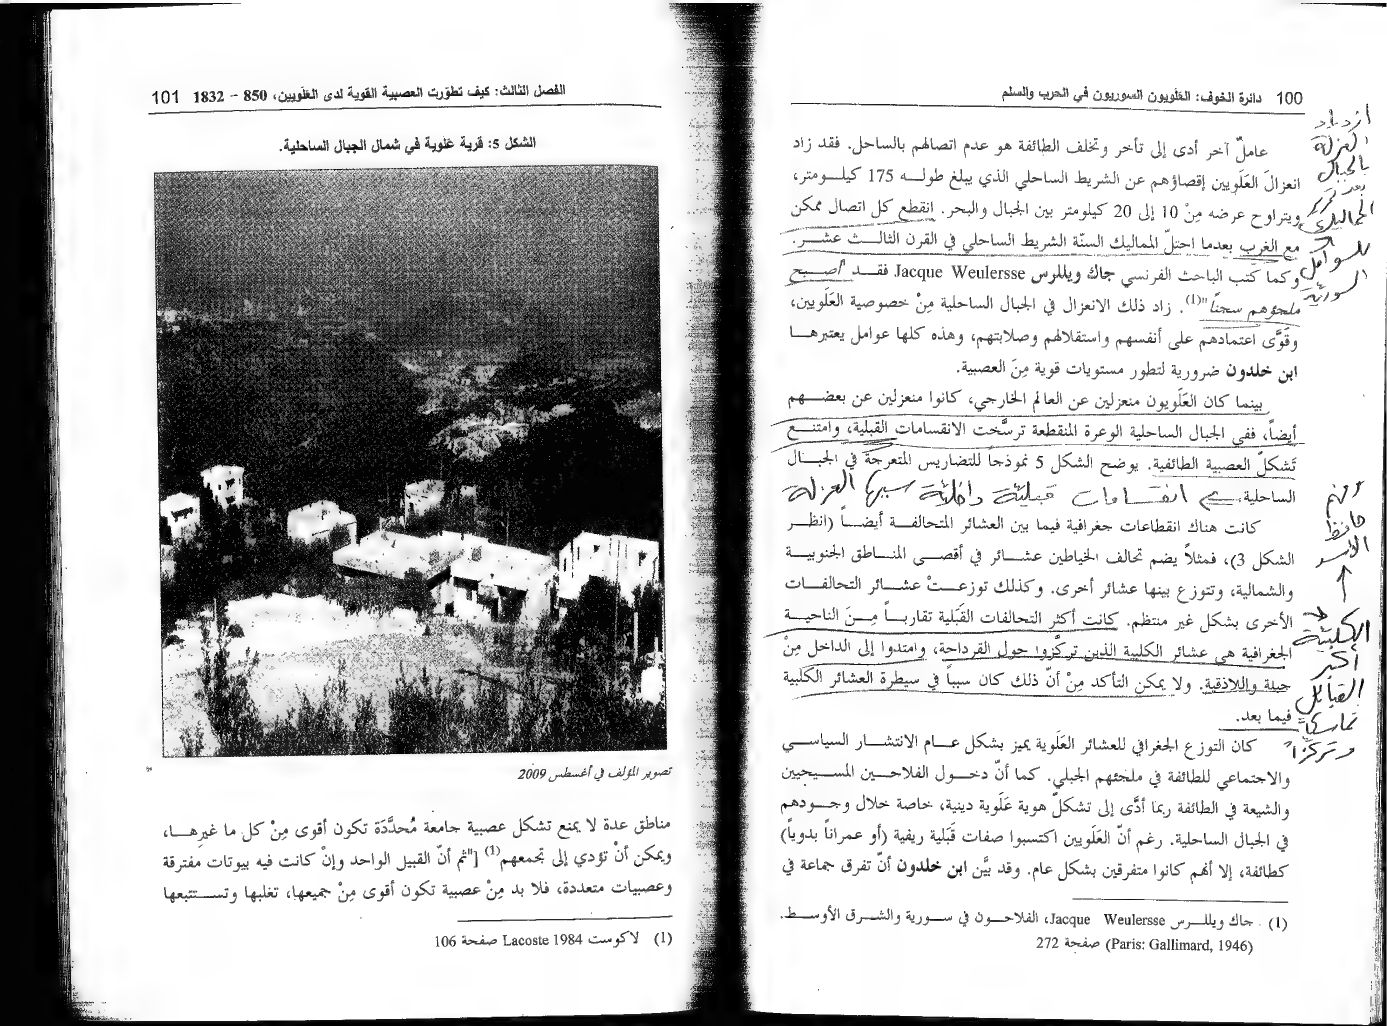 100 دائرة الخوف: العَلَويون السوريون في الحرب والسلم
عاملٌ آخر أدى إلى تأخر وتخلف الطائفة هو عدم اتصالهم بالساحل. فقد زاد
انعزالَ العَلَويين إقصاؤهم عن الشريط الساحلي الذي يبلغ طولـه 175 كيلـومتر،
ويتراوح عرضه مِنْ 10 إلى 20 كيلومتر بين الجبال والبحر. انقطع كل اتصال ممكن
مع الغرب بعدما احتلّ المماليك السنّة الشريط الساحلي في القرن الثالـث عشـر.
وكما كتب الباحث الفرنسي جاك ويللرس Jacque Weulersse فقـد "أصـبح
ملجؤهم سجناً"(1). زاد ذلك الانعزال في الجبال الساحلية مِنْ خصوصية العَلَويين،
وقَوَّى اعتمادهم على أنفسهم واستقلالهم وصلابتهم، وهذه كلها عوامل يعتبرهـا
ابن خلدون ضرورية لتطور مستويات قوية مِنَ العصبية.
بينما كان العَلَويون منعزلين عن العالم الخارجي، كانوا منعزلين عن بعضـهم
أيضاً، ففي الجبال الساحلية الوعرة المنقطعة ترسَّخت الانقسامات القَبلية، وامتنـع
تَشكلّ العصبية الطائفية. يوضح الشكل 5 نموذجاً للتضاريس المتعرجة في الجبـال
الساحلية. ⇐ انقسامات قبليّة داخليّة سببها العزلة
كانت هناك انقطاعات جغرافية فيما بين العشائر المتحالفـة أيضـاً (انظـر
الشكل 3)، فمثلاً يضم تحالف الخياطين عشـائر في أقصـى المنـاطق الجنوبيـة
والشمالية، وتتوزع بينها عشائر أخرى. وكذلك توزعـتْ عشـائر التحالفـات
الأخرى بشكل غير منتظم. كانت أكثر التحالفات القَبَلية تقاربـاً مِـنَ الناحيـة
الجغرافية هي عشائر الكلبية الذين تركّزوا حول القرداحة، وامتدوا إلى الداخل مِنْ
جبلة واللاذقية. ولا يمكن التأكد مِنْ أنّ ذلك كان سبباً في سيطرة العشائر الكلبية
فيما بعد.
كان التوزع الجغرافي للعشائر العَلَوية يميز بشكل عـام الانتشـار السياسـي
والاجتماعي للطائفة في ملجئهم الجبلي. كما أنّ دخـول الفلاحـين المسـيحيين
والشيعة في الطائفة ربما أدَّى إلى تشكلّ هوية عَلَوية دينية، خاصة خلال وجـودهم
في الجبال الساحلية. رغم أنّ العَلَويين اكتسبوا صفات قَبَلية ريفية (أو عمراناً بدوياً)
كطائفة، إلا أنهم كانوا متفرقين بشكل عام. وقد بيَّن ابن خلدون أنّ تفرق جماعة في
(1) جاك ويللـرس Jacque Weulersse، الفلاحـون في سـورية والشـرق الأوسـط.
(Paris: Gallimard, 1946) صفحة 272
ازدياد
العزلة
بالجبال
بعد تحرير
المماليك
للسواحل
السورية
ومنهم
حافظ
الأسد
الكلبيّة
أكثر
القبائل
تماسكاً
وتركزاً
الفصل الثالث: كيف تطوّرت العصبية القوية لدى العَلَويين، 850 – 1832 101
الشكل 5: قرية عَلَوية في شمال الجبال الساحلية.
تصوير المؤلف في أغسطس 2009
مناطق عدة لا يمنع تشكل عصبية جامعة مُحدَّدَة تكون أقوى مِنْ كل ما غيرهـا،
ويمكن أنْ تؤدي إلى تجمعهم(1) ["ثم أنّ القبيل الواحد وإنْ كانت فيه بيوتات مفترقة
وعصبيات متعددة، فلا بد مِنْ عصبية تكون أقوى مِنْ جميعها، تغلبها وتسـتتبعها
(1) لاكوست Lacoste 1984 صفحة 106